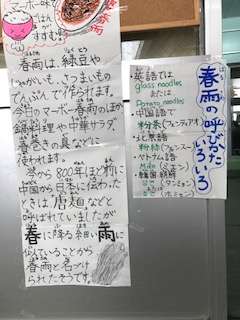 マーボー味で
ごはん
すすむ
春雨は、緑豆や
じゃがいも、さつまいもの
でんぷんで作られます。
今日のマーボー春雨のほか、
鍋料理や中華サラダ、
春巻きの具などに
使われます。
今から800年ほど前に
中国から日本に伝わった
ときは「唐麺」などと
呼ばれていましたが
春に降る細い雨に
似ていることから
春雨と名づけ
られたそうです。
春雨の呼びかたいろいろ
・英語では
glass noodles
または
Potato noodles
・中国語で
粉条(フェンティアオ)
・北と東北
粉絲(フェンスー)
・ベトナム語
・韓国・朝鮮